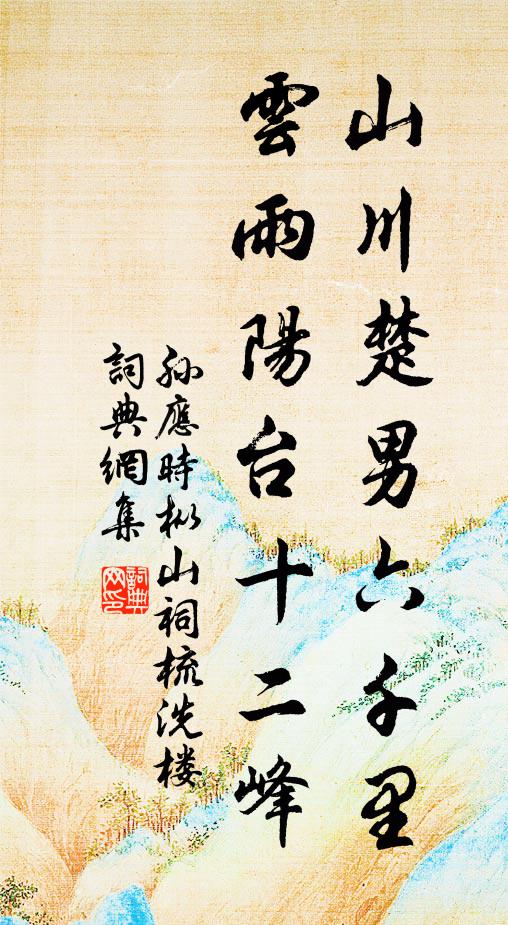 山川楚男六千里
雲雨陽台十二峰
孙應時枞山祠梳洗楼
詞典網集
詞典
网印